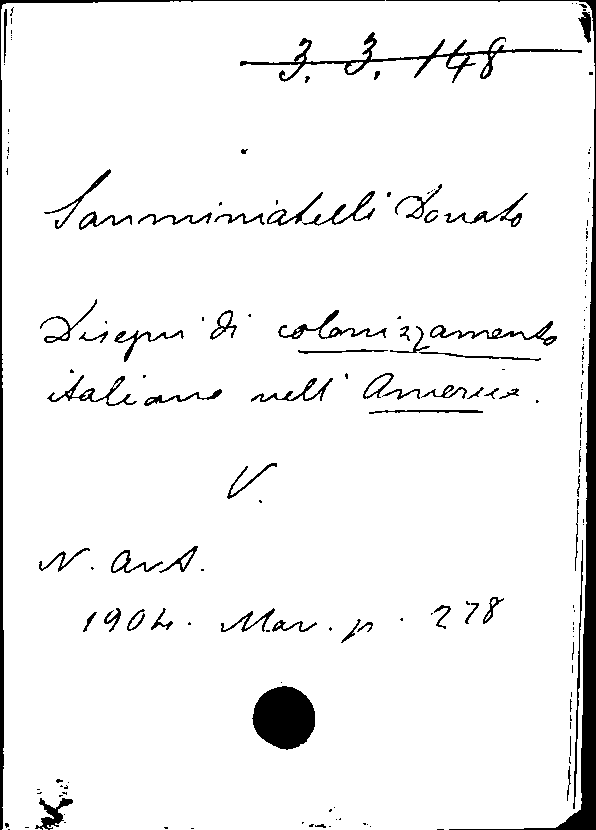 3. 3. 148
Sanminiatelli Donato
Disegni di colonizzamento
italiano nell' America.
V.
N. Ant.
1904. Mar. p. 278